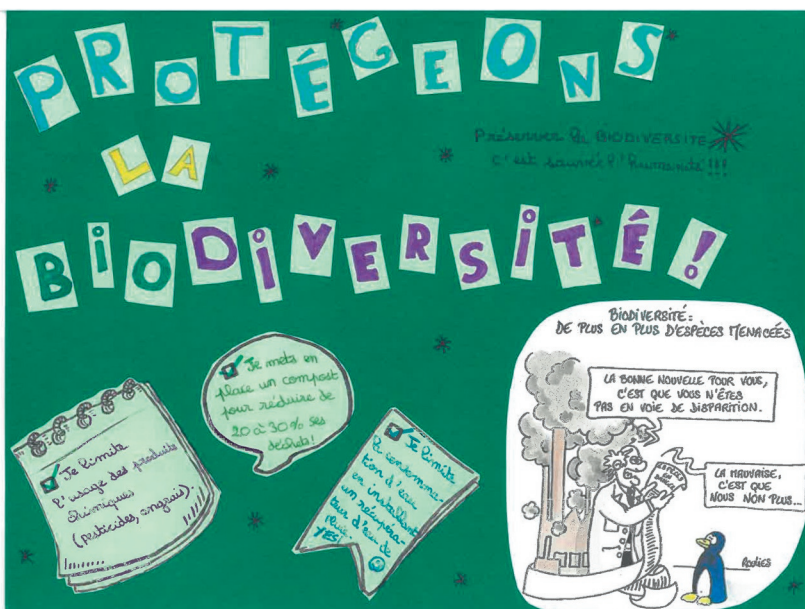 PROTÉGEONS
LA
BIODIVERSITÉ !
Préserver la BIODIVERSITE
c'est sauvée l'humanité !!!
Je limite
l'usage des produits
chimiques
(pesticides, engrais).
Je mets en
place un compost
pour réduire de
20 à 30% ses
déchets!
Je limite
la consomma-
tion d'eau
en installant
un récupéra-
teur d'eau de
pluie.
YES!
BIODIVERSITÉ :
DE PLUS EN PLUS D'ESPÈCES MENACÉES
LA BONNE NOUVELLE POUR VOUS,
C'EST QUE VOUS N'ÊTES
PAS EN VOIE DE DISPARITION.
LA MAUVAISE,
C'EST QUE
NOUS NON PLUS...
ESPÈCES
EN